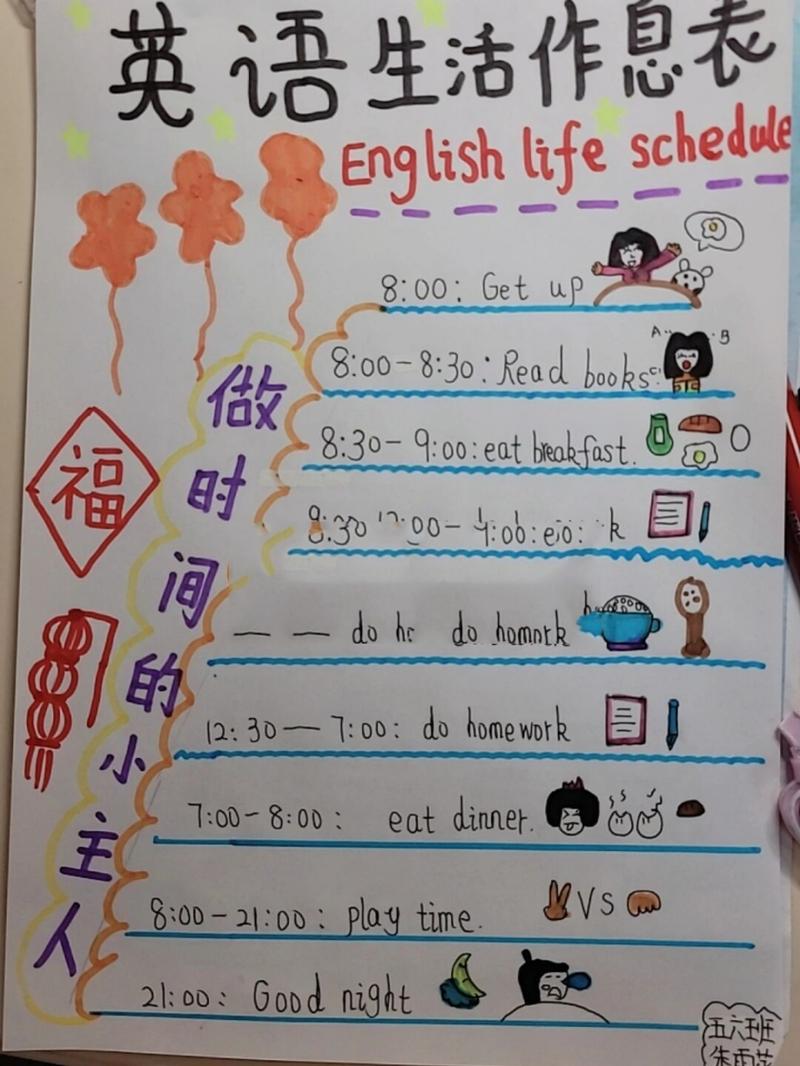 英语生活作息表
English life schedule
做时间的小主人
福
8:00: Get up
A B
8:00-8:30: Read books
8:30-9:00: eat breakfast.
do do
12:30—7:00: do homework
7:00-8:00: eat dinner.
8:00-21:00: play time.
VS
21:00: Good night
五六班
朱雨